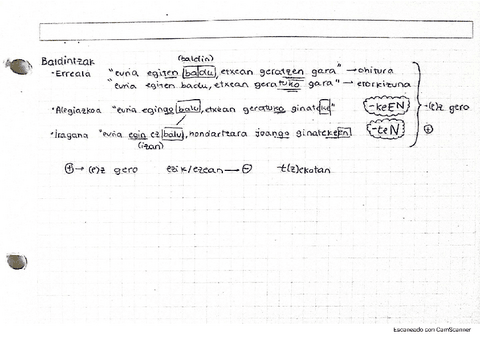 Baldintzak
(baldin)
·Erreala "euria egiten badu, etxean geratzen gara" → ohitura
"euria egiten badu, etxean geratuko gara" → etorkizuna
·Alegiazkoa "euria egingo balu, etxean geratuko ginateke"
-keEN
-(e)z gero
·Iragana "euria egin ez balu, hondartzara joango ginatekeEN
-teN
+
(izan)
+ → (e)z gero ezik/ezean → - t(z)ekotan
Escaneado con CamScanner